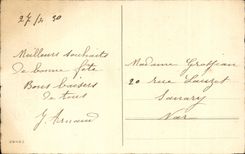 27/2 30
Meilleurs souhaits
de bonne fête
Bons baisers
de tous
J. Arnaud
Madame Grosjean
20 rue Lauzet
Sanary
Var